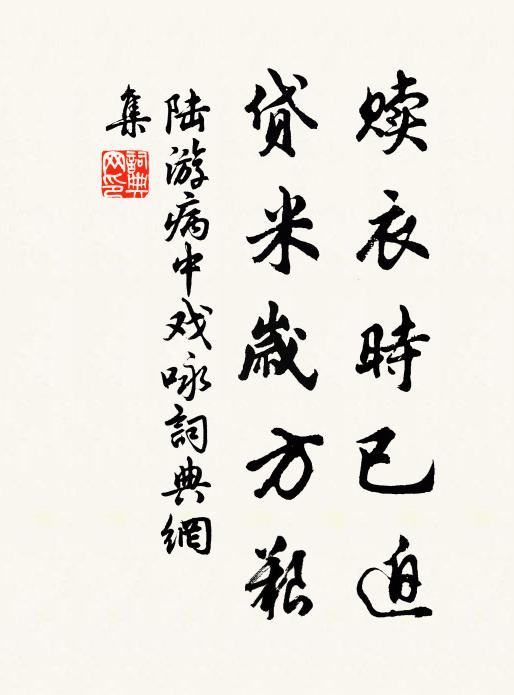 赎衣時已迫
貸米歲方艱
陆游病中戏咏詞典網
集
詞典
网印